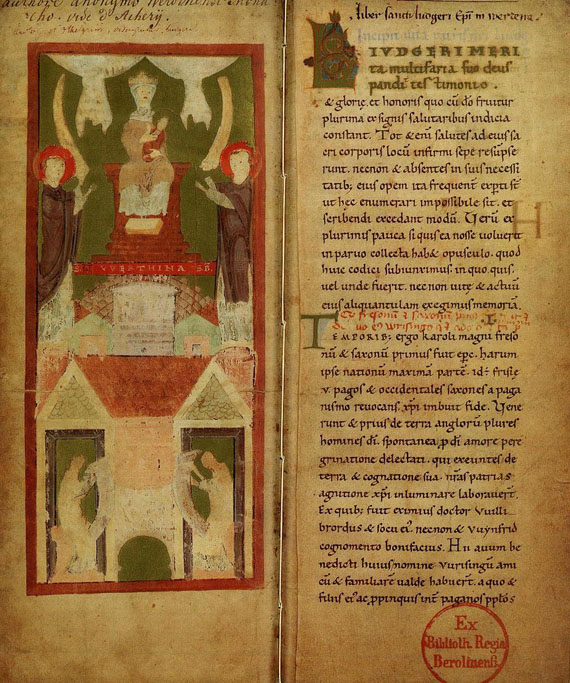 authore anonymo Werdinensi Mona
cho. vide d'Achery.
VVERTHINA
liber sancti ludgeri Epī in werdena.
Incipit
LIVDGERI MERI
ta multifaria suo deus
pandit testimonio.
& glorię, et honoris quo cū dō fruitur
plurima ex signis salutaribus indicia
constant. Tot & enī salutes ad eius sa
cri corporis locū infirmi sepe resūpse
runt, necnon & absentes in suis necessi
tatib; eius opem ita frequent̄ experti st̄
ut hęc enumerari impossibile sit, et
scribendi excedant modū. Verū ex
plurimis pauca si quis ea nosse voluerit
in parvo collecta hab& opusculo. quod
huic codici subiunximus. in quo. quis.
vel unde fuerit. necnon vitę & actuū
eius aliquantulam exegimus memoriā.
TEMPORIB; ergo karoli magni freso
nū & saxonū primus fuit epc̄. harum
ipse nationū maxima parte. id: frisię
v. pagos & occidentales saxones a paga
nismo revocans. xp̄i imbuit fide. Vene
runt & prius de terra anglorū plures
homines dī. spontanea p dī amore pere
grinatione delectati. qui exeuntes de
terra & cognatione sua. nr̄as patrias
agnitione xp̄i inluminare laboravert̄.
Ex quib; fuit eximius doctor Vuilli
brordus & socii ei'. necnon & vuynfrid
cognomento bonifacius. Hii avum be
nedicti huius nomine vursingū ami
cū & familiarē valde habuert̄. a quo &
filiis ei' ac ppinquis int̄ paganos pp̄tos
Ex
Biblioth. Regia
Berolinensi